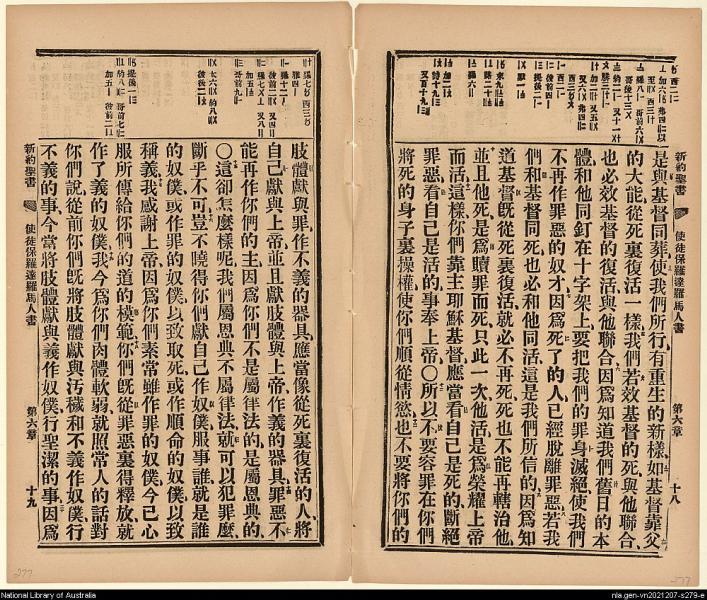 新約聖書
使徒保羅達羅馬人書
第六章
十八
是與基督同葬使我們所行有重生的新樣如基督靠父
的大能從死裏復活一樣我們若效基督的死與他聯合
也必效基督的復活與他聯合因爲知道我們舊日的本
體和他同釘在十字架上要把我們的罪身滅絕使我們
不再作罪惡的奴才因爲死了的人已經脫離罪惡若我
們和基督同死也必和他同活這是我們所信的因爲知
道基督旣從死裏復活就必不再死死也不能再轄治他
並且他死是爲贖罪而死只此一次他活是爲榮耀上帝
而活這樣你們靠主耶穌基督應當看自己是死的斷絕
罪惡看自己是活的事奉上帝〇所以不要容罪在你們
將死的身子裏操權使你們順從情慾也不要將你們的
肢體獻與罪作不義的器具應當像從死裏復活的人將
自己獻與上帝並且獻肢體與上帝作義的器具罪惡不
能再作你們的主因爲你們不是屬律法的是屬恩典的
〇這卻怎麽樣呢我們屬恩典不屬律法就可以犯罪麽
斷乎不可豈不曉得你們獻自己作奴僕服事誰就是誰
的奴僕或作罪的奴僕以致取死或作順命的奴僕以致
稱義我感謝上帝因爲你們素常雖作罪的奴僕今已心
服所傳給你們的道的模範你們旣從罪惡裏得釋放就
作了義的奴僕我今爲你們肉體軟弱就照常人的話對
你們說從前你們旣將肢體獻與汚穢和不義作奴僕行
不義的事今當將肢體獻與義作奴僕行聖潔的事因爲
新約聖書
使徒保羅達羅馬人書
第六章
十九
277
277
National Library of Australia
nla.gen-vn2021207-s279-e